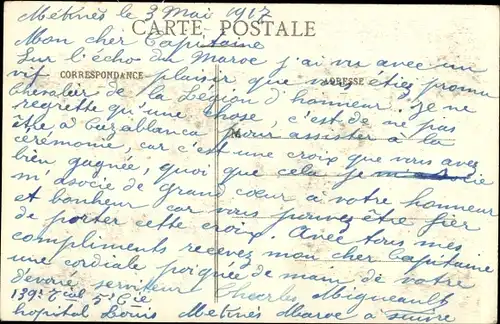 Mèknès le 3 Mai 1917
CARTE POSTALE
Mon cher Capitaine
Sur l'écho du Maroc j'ai vu avec un
vif plaisir que vous étiez promu
CORRESPONDANCE
ADRESSE
Chevalier de la Légion d'honneur. Je ne
regrette qu'une chose, c'est de ne pas
être à Cazablanca pour assister à la
cérémonie, car c'est une croix que vous avez
bien gagnée, quoi que cela je m'associe
m'associe de grand cœur à votre honneur
et bonheur car vous pouvez être fier
de porter cette croix. Avec tous mes
compliments recevez mon cher Capitaine
une cordiale poignée de main de votre
dévoué serviteur Charles Migueault
139e Tial 5e Cie
hopital Louis Meknès Maroc à suivre